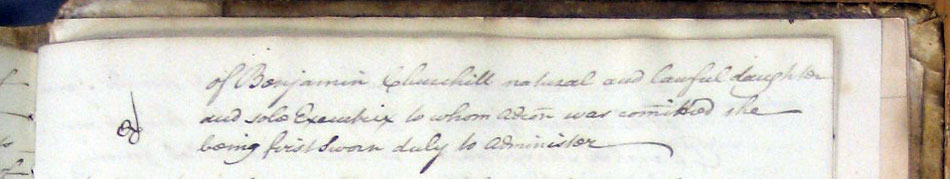 of Benjamin Churchill natural and lawful daughter
and sole Executrix to whom adcōn was com̄itted she
being first sworn duly to administer